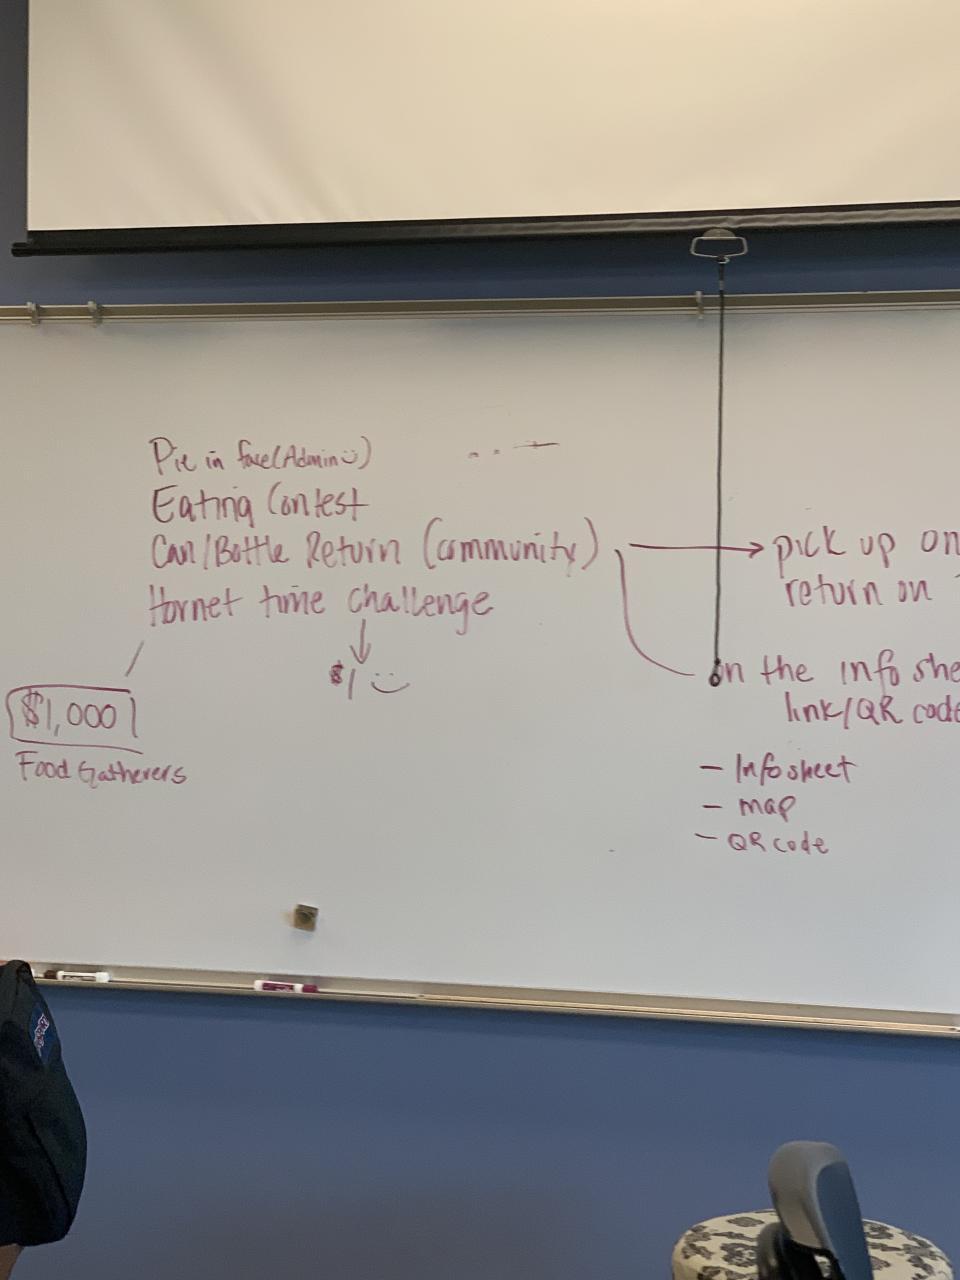 Pie in face (Admin :))
Eating Contest
Can/Bottle Return (community)
Hornet time challenge
$1 :)
$1,000
Food Gatherers
pick up on
return on
on the info she
link/QR code
- Info sheet
- map
- QR code